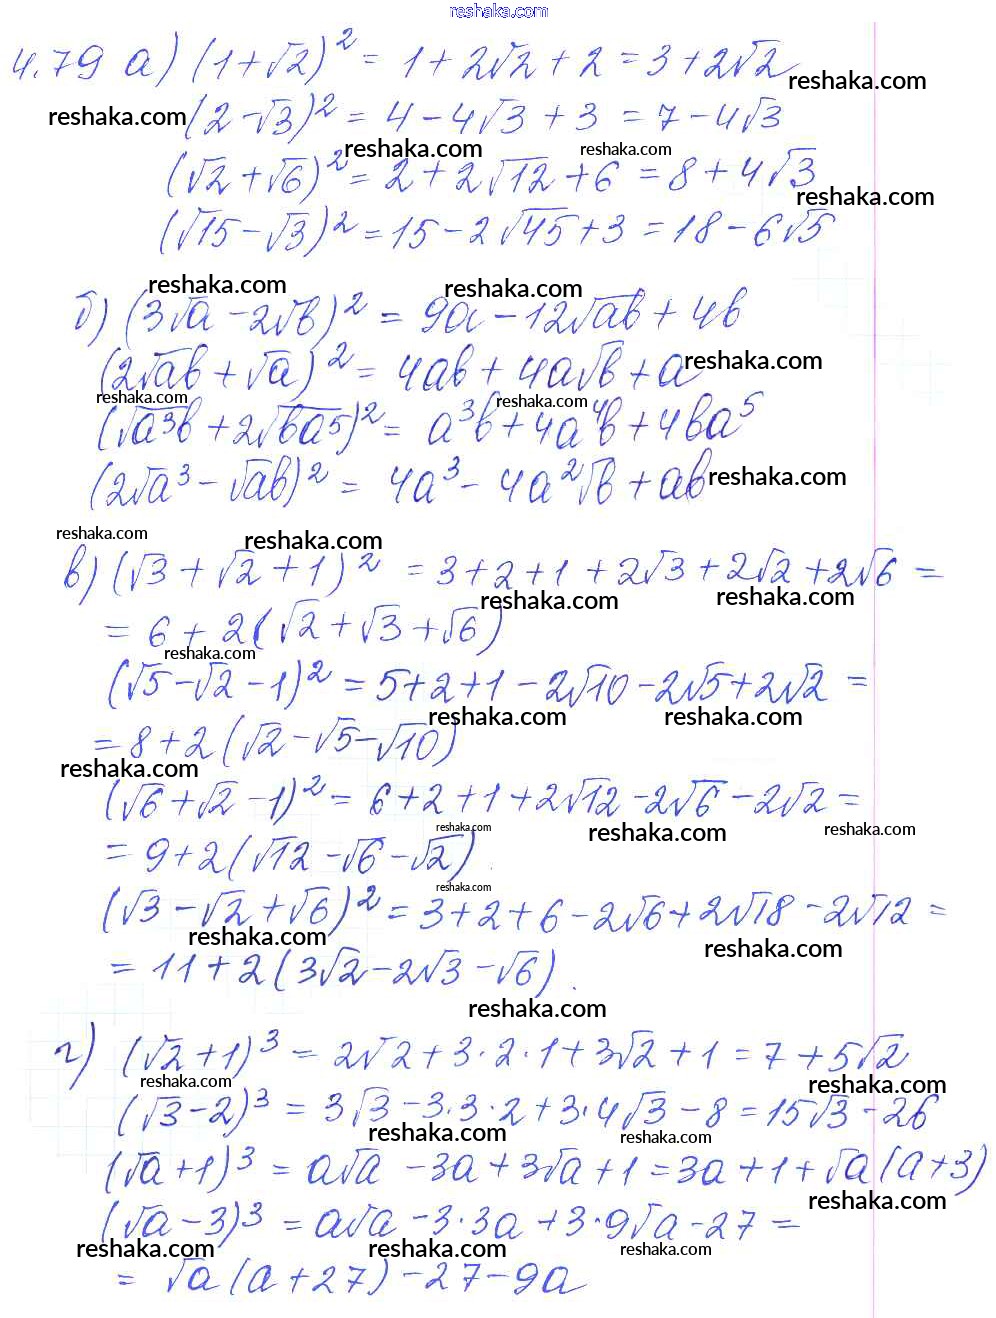 reshaka.com
4.79 а) (1+√2)² = 1 + 2√2 + 2 = 3 + 2√2
reshaka.com
reshaka.com (2-√3)² = 4 - 4√3 + 3 = 7 - 4√3
reshaka.com reshaka.com
(√2 + √6)² = 2 + 2√12 + 6 = 8 + 4√3
reshaka.com
(√15 - √3)² = 15 - 2√45 + 3 = 18 - 6√5
reshaka.com reshaka.com
б) (3√a - 2√b)² = 9a - 12√ab + 4b
(2√ab + √a)² = 4ab + 4a√b + a reshaka.com
reshaka.com reshaka.com
(√a³b + 2√ba⁵)² = a³b + 4a⁴b + 4ba⁵
(2√a³ - √ab)² = 4a³ - 4a²√b + ab reshaka.com
reshaka.com reshaka.com
в) (√3 + √2 + 1)² = 3 + 2 + 1 + 2√3 + 2√2 + 2√6 =
reshaka.com reshaka.com
= 6 + 2(√2 + √3 + √6)
reshaka.com
(√5 - √2 - 1)² = 5 + 2 + 1 - 2√10 - 2√5 + 2√2 =
reshaka.com reshaka.com
= 8 + 2(√2 - √5 - √10)
reshaka.com
(√6 + √2 - 1)² = 6 + 2 + 1 + 2√12 - 2√6 - 2√2 =
reshaka.com reshaka.com reshaka.com
= 9 + 2(√12 - √6 - √2)
reshaka.com
(√3 - √2 + √6)² = 3 + 2 + 6 - 2√6 + 2√18 - 2√12 =
reshaka.com reshaka.com
= 11 + 2(3√2 - 2√3 - √6).
reshaka.com
г) (√2 + 1)³ = 2√2 + 3·2·1 + 3√2 + 1 = 7 + 5√2
reshaka.com reshaka.com
(√3 - 2)³ = 3√3 - 3·3·2 + 3·4√3 - 8 = 15√3 - 26
reshaka.com reshaka.com
(√a + 1)³ = a√a - 3a + 3√a + 1 = 3a + 1 + √a(a + 3)
reshaka.com
(√a - 3)³ = a√a - 3·3a + 3·9√a - 27 =
reshaka.com reshaka.com reshaka.com
= √a(a + 27) - 27 - 9a